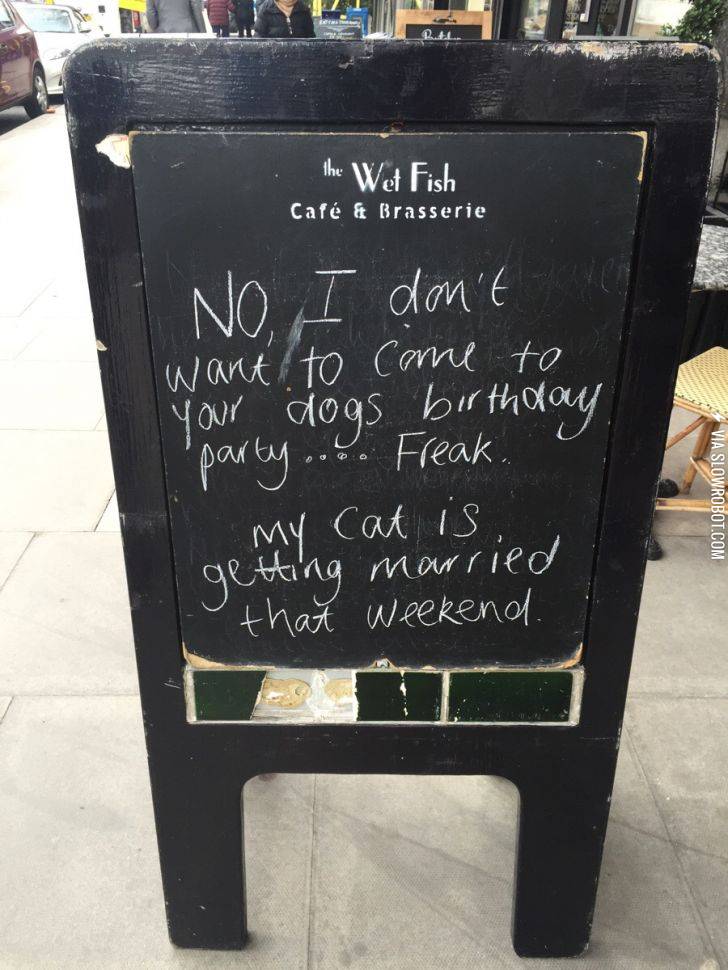 the Wet Fish
Café & Brasserie
NO, I don't
want to come to
your dogs birthday
party.... Freak.
my cat is
getting married
that weekend.
VIA SLOWROBOT.COM